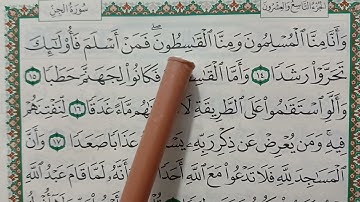 الجزء التاسع والعشرون
سورة الجن
وَأَنَّا مِنَّا ٱلْمُسْلِمُونَ وَمِنَّا ٱلْقَٰسِطُونَ فَمَنْ أَسْلَمَ فَأُو۟لَٰٓئِكَ
تَحَرَّوْا۟ رَشَدًا ١٤ وَأَمَّا فَكَانُوا۟ لِجَهَنَّمَ حَطَبًا ١٥
وَأَلَّوِ ٱسْتَقَٰمُوا۟ عَلَى ٱلطَّرِيقَةِ مَّآءً غَدَقًا ١٦ لِّنَفْتِنَهُمْ
فِيهِ وَمَن يُعْرِضْ عَن ذِكْرِ رَبِّهِۦ عَذَابًا صَعَدًا ١٧ وَأَنَّ
ٱلْمَسَٰجِدَ لِلَّهِ فَلَا تَدْعُوا۟ مَعَ ٱللَّهِ أَحَدًا وَأَنَّهُۥ لَمَّا قَامَ عَبْدُ ٱللَّهِ